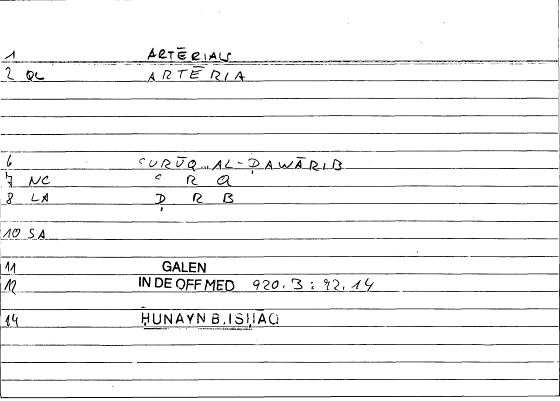 1 ARTĒRIALIS
2 QL ARTĒRIA
6 ʿURŪQ AL-ḌAWĀRIB
7 NC ʿ R Q
8 LA Ḍ R B
10 SA
11 GALEN
12 IN DE OFF MED 920.3 : 92.14
14 ḤUNAYN B. ISḤĀQ